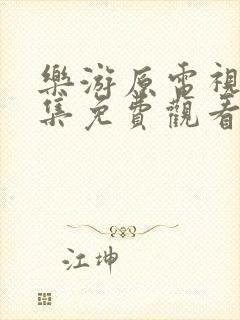 樂游原電視
集免費觀看
江坤